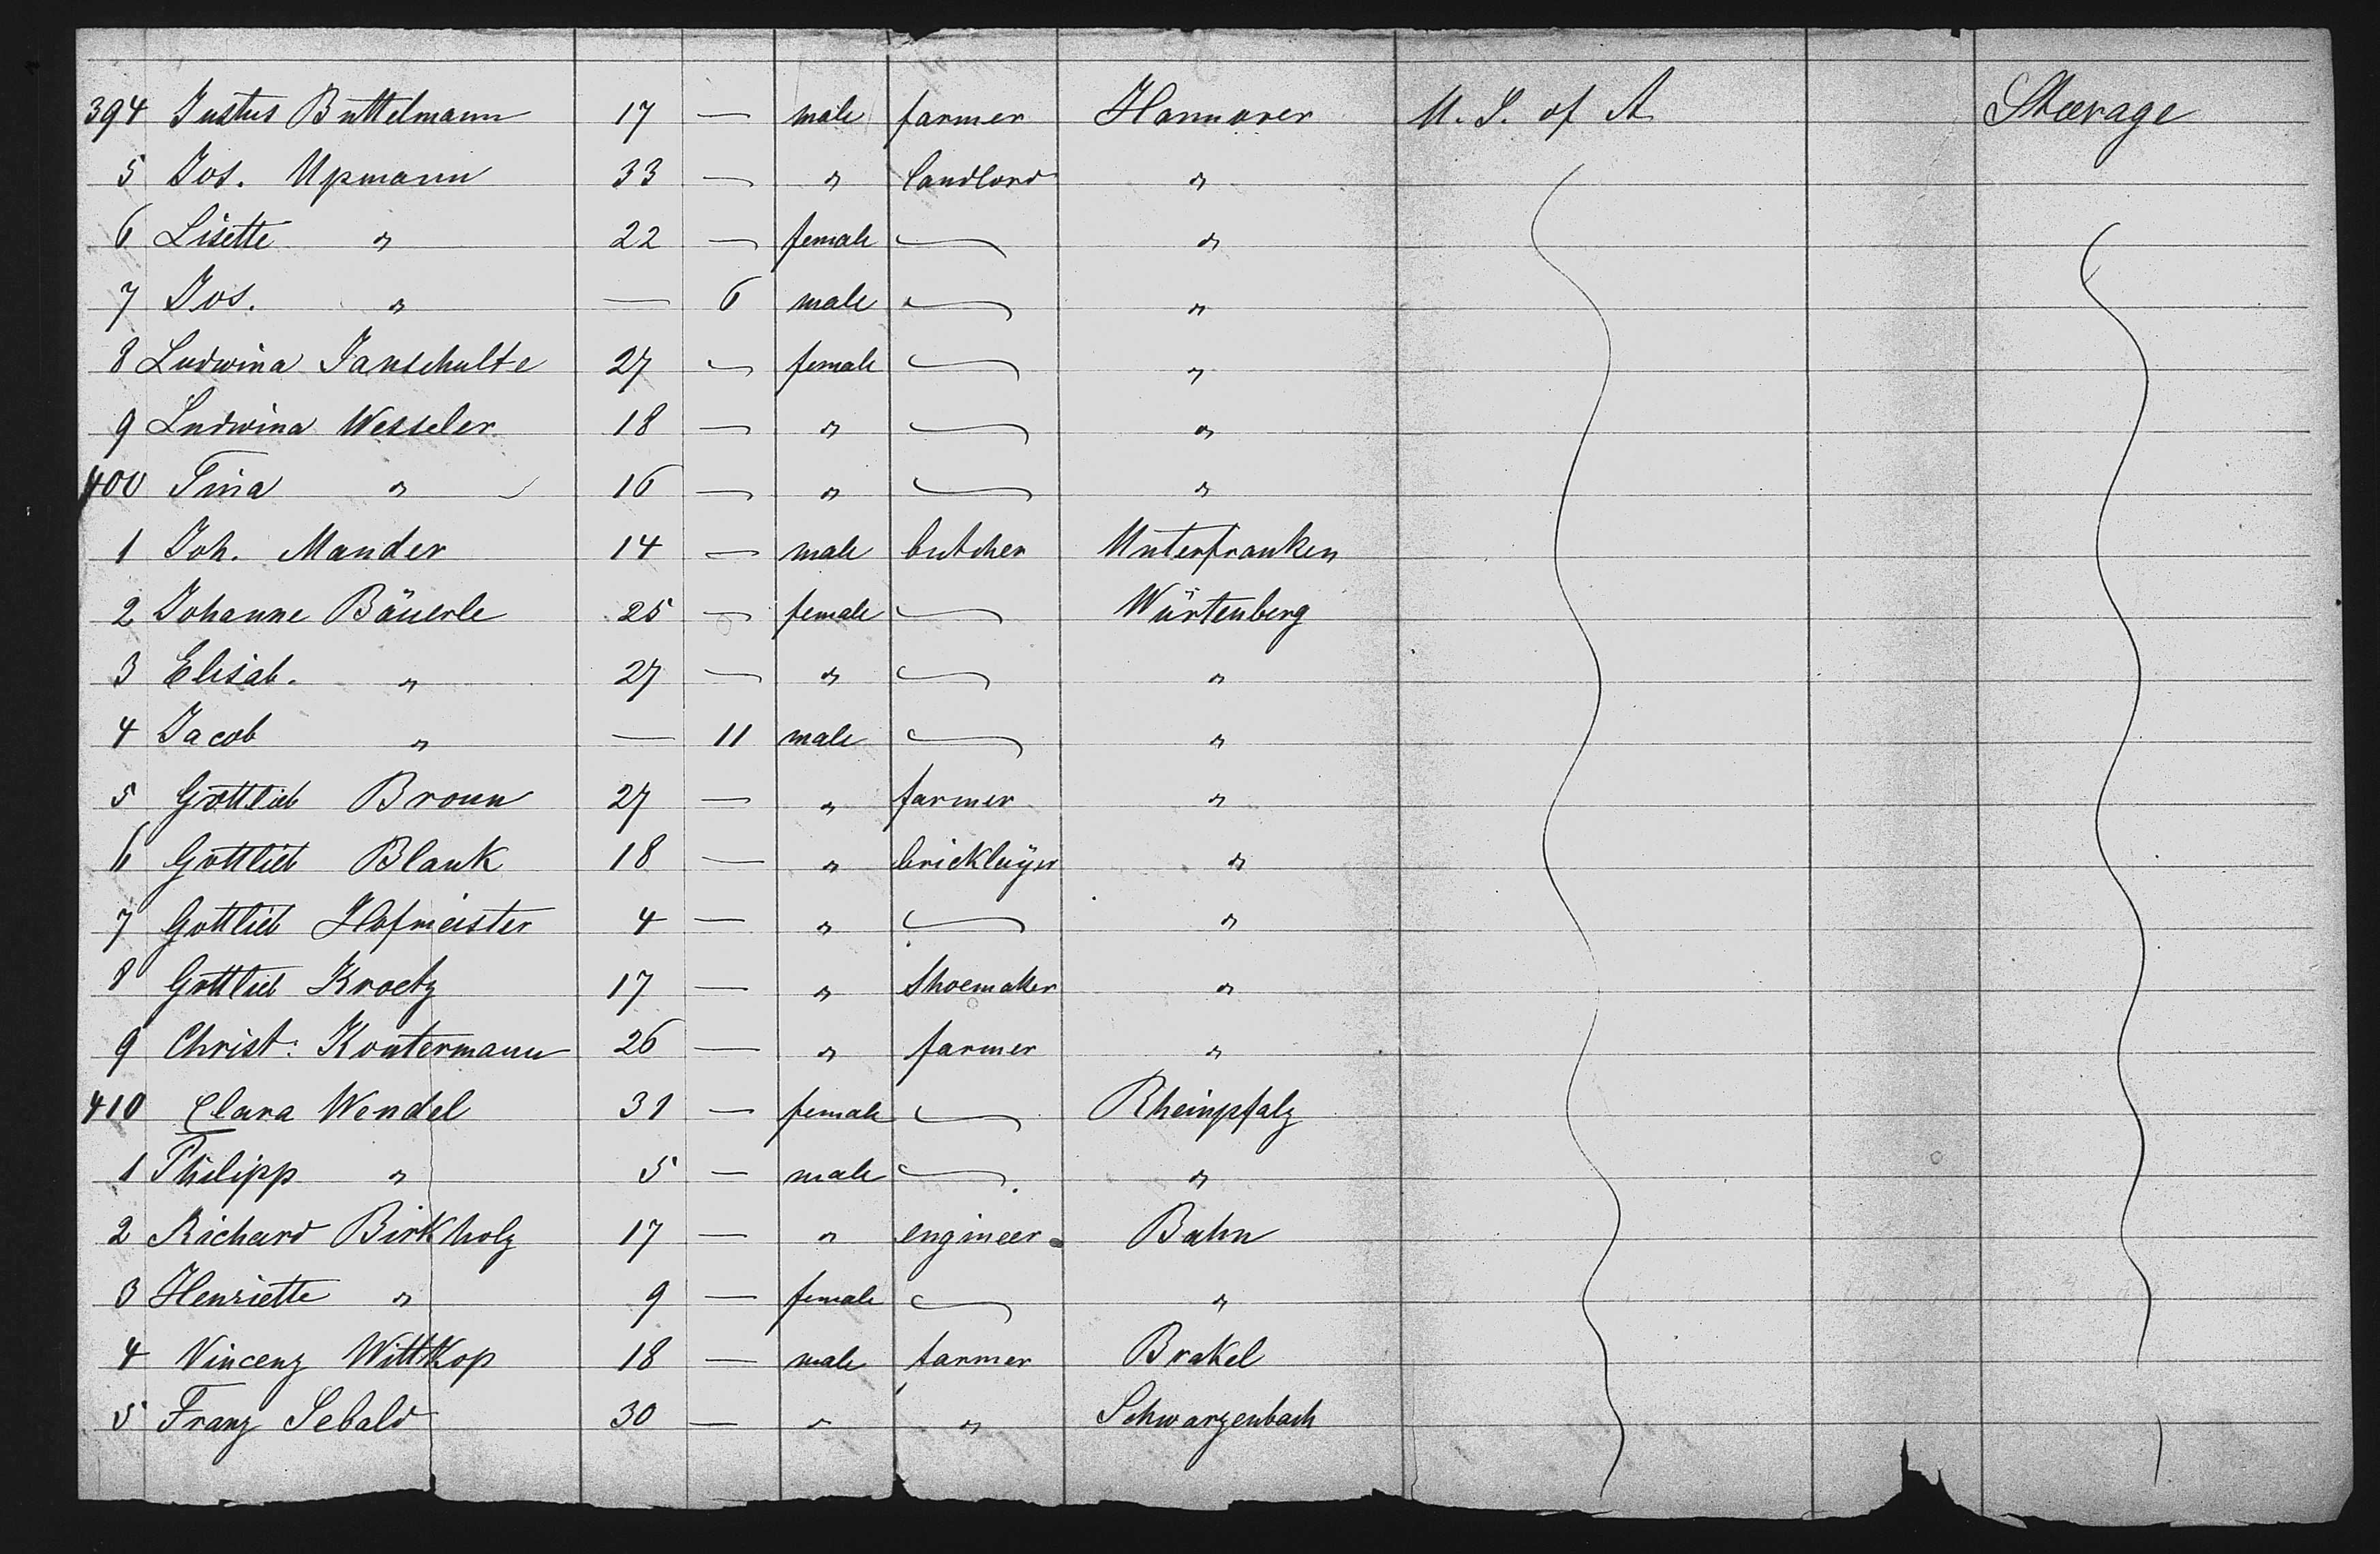 394 Justus Buttelmann 17 — male farmer Hannover U. S. of A Steerage
5 Jos. Upmann 33 — " landlord "
6 Lisette " 22 — female — "
7 Jos. " — 6 male — "
8 Ludwina Janschulte 27 — female — "
9 Ludwina Wesseler 18 — " — "
400 Tina " 16 — " — "
1 Joh. Mander 14 — male butcher Unterfranken
2 Johanne Bäuerle 25 — female — Würtenberg
3 Elisab. " 27 — " — "
4 Jacob " — 11 male — "
5 Gottlieb Broun 27 — " farmer "
6 Gottlieb Blank 18 — " bricklayer "
7 Gottlieb Hofmeister 4 — " — "
8 Gottlieb Kroetz 17 — " shoemaker "
9 Christ: Kontermann 26 — " farmer "
410 Clara Wendel 31 — female — Rheinpfalz
1 Philipp " 5 — male — "
2 Richard Birkholz 17 — " engineer Bahn
3 Henriette " 9 — female — "
4 Vincenz Wittkop 18 — male farmer Brakel
5 Franz Sebald 30 — " " Schwarzenbach